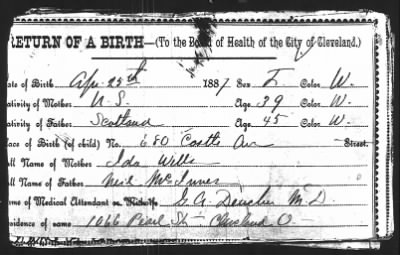 RETURN OF A BIRTH—(To the Board of Health of the City of Cleveland.)
ate of Birth Apr. 25th 1887 Sex F Color W.
ativity of Mother U. S. Age 39 Color W.
ativity of Father Scotland Age 45 Color W.
lace of Birth (of child) No. 680 Castle Av Street.
ll Name of Mother Ida Wells
ll Name of Father Neil McInnes
ame of Medical Attendant or Midwife G. A. M. D.
esidence of same 1066 Pearl St. Cleveland O.